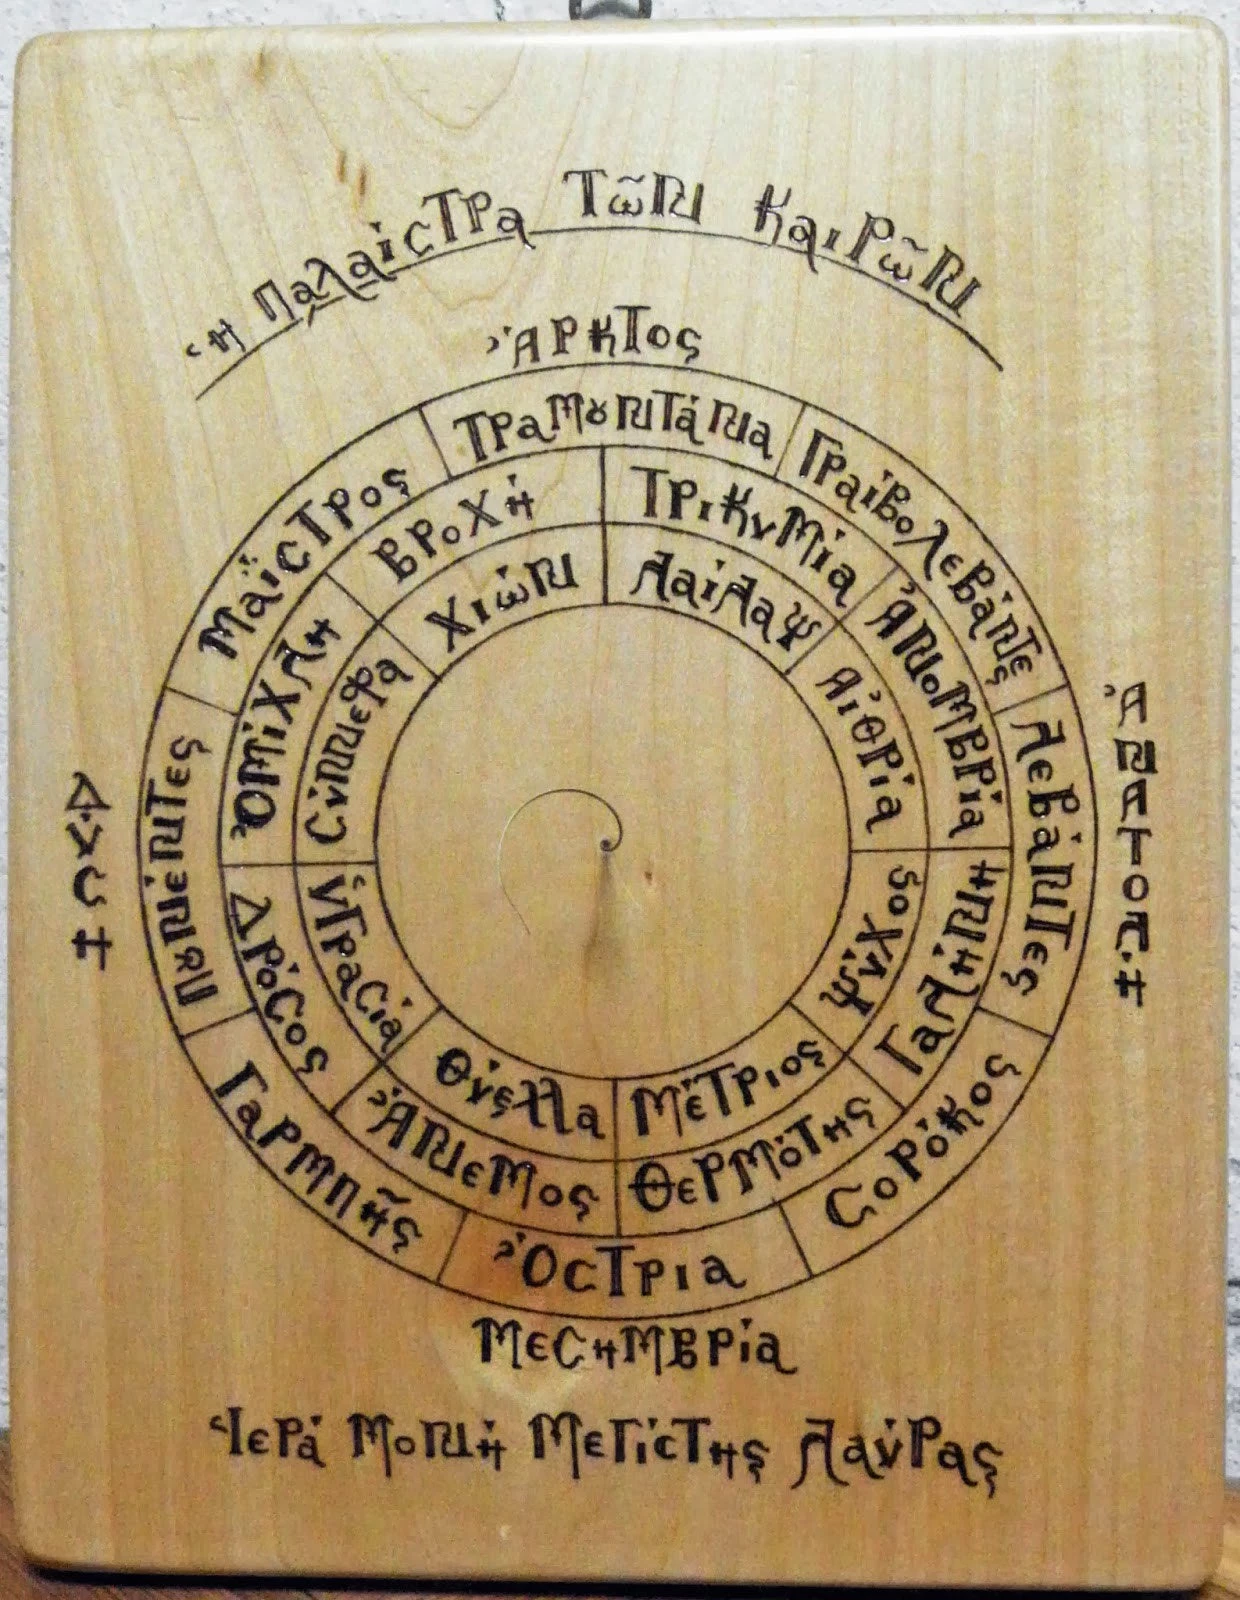 Ἡ Παλαίστρα Τῶν Καιρῶν
Ἄρκτος
Τραμουντάνα
Γραίβολεβάντες
Λεβάντες
Σορόκος
Ὄστρια
Γαρμπῆς
Πουνέντες
Μαΐστρος
Τρικυμία
Ἀνομβρία
Γαλήνη
Θερμότης
Ἄνεμος
Δρόσος
Ὀμίχλη
Βροχή
Λαίλαψ
Αἰθρία
Ψύχος
Μέτριος
Θύελλα
Ὑγρασία
Σύννεφα
Χιών
Δύση
Ἀνατολή
Μεσημβρία
Ἱερά Μονή Μεγίστης Λαύρας